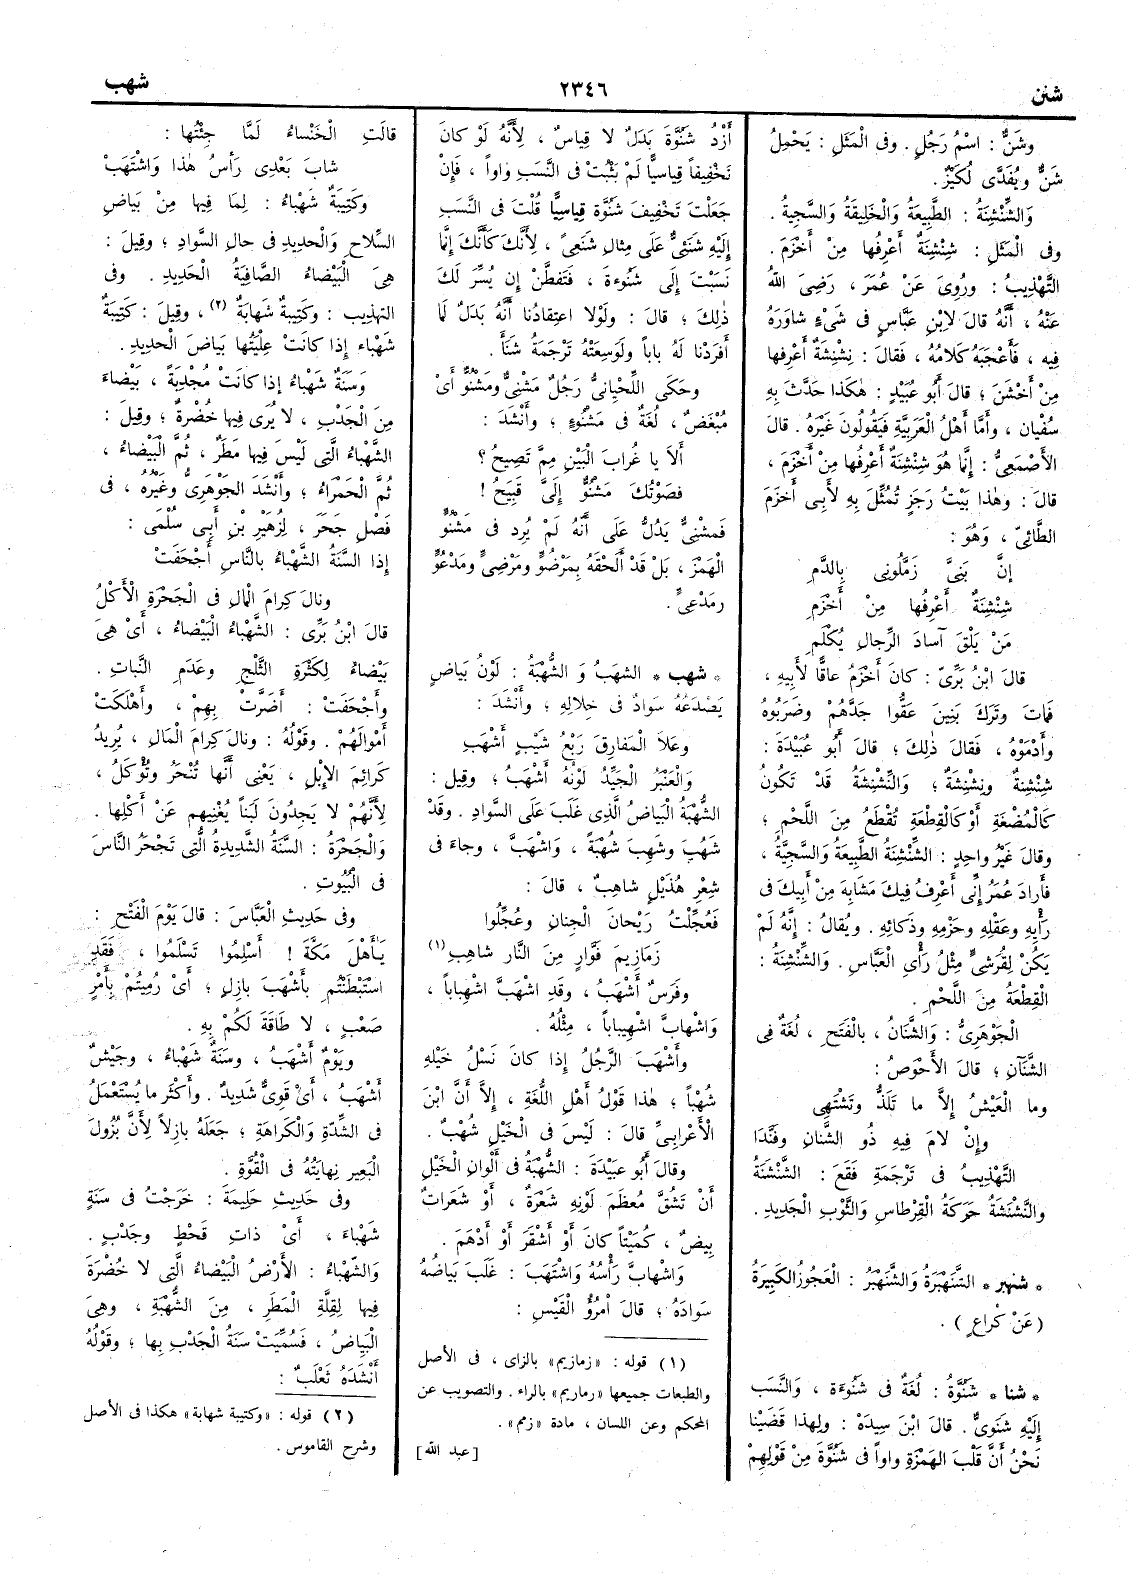 شنن
٢٣٤٦
شهب
وشَنٌّ : اسْمُ رَجُلٍ . وفى الْمَثَلِ : يَحْمِلُ
شَنٌّ ويُفَدَّى لُكَيْزٌ .
وَالشِّنْشِنَةُ : الطَّبِيعَةُ وَالْخَلِيقَةُ وَالسَّجِيَّةُ .
وفى الْمَثَلِ : شِنْشِنَةٌ أَعْرِفُها مِنْ أَخْزَمَ .
التَّهْذِيبُ : ورُوِىَ عَنْ عُمَرَ ، رَضِىَ اللهُ
عَنْهُ ، أَنَّهُ قالَ لاِبْنِ عَبَّاسٍ فى شَىْءٍ شاوَرَهُ
فِيهِ ، فَأَعْجَبَهُ كَلامُهُ ، فَقالَ : نِشْنِشَةٌ أَعْرِفُها
مِنْ أَخْشَنَ ؛ قالَ أَبُو عُبَيْدٍ : هٰكَذا حَدَّثَ بِهِ
سُفْيان ، وأَمَّا أَهْلُ الْعَرَبِيَّةِ فَيَقُولُونَ غَيْرَهُ . قالَ
الأَصْمَعِىُّ : إِنَّما هُوَ شِنْشِنَةٌ أَعْرِفُها مِنْ أَخْزَمَ ،
قالَ : وهٰذا بَيْتُ رَجَزٍ تُمُثِّلَ بِهِ لأَبِى أَخْزَمَ
الطَّائِىّ ، وَهُوَ :
إِنَّ بَنِىَّ زَمَّلُونِى بِالدَّمِ
شِنْشِنَةٌ أَعْرِفُها مِنْ أَخْزَمِ
مَنْ يَلْقَ آسادَ الرِّجالِ يُكْلَمِ
قالَ ابْنُ بَرِّىّ : كانَ أَخْزَمُ عاقًّا لأَبِيهِ ،
فَماتَ وتَرَكَ بَنِينَ عَقُّوا جَدَّهُمْ وضَرَبُوهُ
وأَدْمَوْهُ ، فَقالَ ذٰلِكَ ؛ قالَ أَبُو عُبَيْدَةَ :
شِنْشِنَةٌ ونِشْنِشَةٌ ؛ والنِّشْنِشَةُ قَدْ تَكُونُ
كَالْمُضْغَةِ أَوْ كَالْقِطْعَةِ تُقْطَعُ مِنَ اللَّحْمِ ؛
وقالَ غَيْرُ واحِدٍ : الشِّنْشِنَةُ الطَّبِيعَةُ وَالسَّجِيَّةُ ،
فَأَرادَ عُمَرُ إِنِّى أَعْرِفُ فِيكَ مَشابِهَ مِنْ أَبِيكَ فى
رَأْيِهِ وعَقْلِهِ وحَزْمِهِ وذَكائِهِ . ويُقالُ : إِنَّهُ لَمْ
يَكُنْ لِقُرَشِىٍّ مِثْلُ رَأْىِ الْعَبَّاسِ . وَالشِّنْشِنَةُ :
الْقِطْعَةُ مِنَ اللَّحْمِ .
الْجَوْهَرِىُّ : وَالشَّنَانُ ، بِالْفَتْحِ ، لُغَةٌ فِى
الشَّنَآنِ ؛ قالَ الأَحْوَصُ :
وما الْعَيْشُ إِلاَّ ما تَلَذُّ وتَشْتَهِى
وإِنْ لامَ فِيهِ ذُو الشَّنانِ وفَنَّدَا
التَّهْذِيبُ فى تَرْجَمَةِ فَقَعَ : الشَّنْشَنَةُ
والنَّشْنَشَةُ حَرَكَةُ الْقِرْطاسِ وَالثَّوْبِ الْجَدِيدِ .
* شنهبر * الشَّنَهْبَرَةُ وَالشَّنَهْبَرُ : الْعَجُوزُ الْكَبِيرَةُ
( عَنْ كُراعٍ ) .
* شنا * شَنُوَّةُ : لُغَةٌ فى شَنُوءَةَ ، وَالنَّسَبُ
إِلَيْهِ شَنَوِىٌّ . قالَ ابْنُ سِيدَهْ : ولِهذا قَضَيْنا
نَحْنُ أَنَّ قَلْبَ الهَمْزَةِ واواً فى شَنُوَّةَ مِنْ قَوْلِهِمْ
أَزْدُ شَنُوَّةَ بَدَلٌ لا قِياسٌ ، لِأَنَّهُ لَوْ كانَ
تَخْفِيفاً قِياسِيًّا لَمْ يَثْبُتْ فى النَّسَبِ واواً ، فَإِنْ
جَعَلْتَ تَخْفِيفَ شَنُوَّةَ قِياسِيًّا قُلْتَ فى النَّسَبِ
إِلَيْهِ شَنَئِىٌّ عَلَى مِثالِ شَنَعِىٍّ ، لِأَنَّكَ كَأَنَّكَ إِنَّما
نَسَبْتَ إِلَى شَنُوءَةَ ، فَتَفَطَّنْ إِن يُسِّرَ لَكَ
ذٰلِكَ ؛ قالَ : ولَوْلا اعتِقادُنا أَنَّهُ بَدَلٌ لَما
أَفْرَدْنا لَهُ باباً ولَوَسِعَتْهُ تَرْجَمَةُ شَنَأَ .
وحَكَى اللِّحْيانِىُّ رَجُلٌ مَشْنِىٌّ ومَشْنُوٌّ أَىْ
مُبْغَضٌ ، لُغَةٌ فى مَشْنُوءٍ ؛ وأَنْشَدَ :
أَلاَ يا غُرابَ الْبَيْنِ مِمَّ تَصِيحُ ؟
فَصَوْتُكَ مَشْنُوٌّ إِلَىَّ قَبِيحُ !
فَمشْنِىٌّ يَدُلُّ عَلَى أَنَّهُ لَمْ يُرِد فى مَشْنُوٍّ
الْهَمْزَ ، بَلْ قَدْ أَلْحَقَهُ بِمَرْضُوٍّ ومَرْضِىٍّ ومَدْعُوٍّ
ومَدْعِىٍّ .
* شهب * الشهَبُ وَ الشُّهْبَةُ : لَوْنُ بَياضٍ
يَصْدَعُهُ سَوادٌ فى خِلالِهِ ؛ وأَنْشَدَ :
وعَلاَ المَفارِقَ رَبْعُ شَيْبٍ أَشْهَبِ
وَالْعَنْبَرُ الْجَيِّدُ لَوْنُهُ أَشْهَبُ ؛ وقِيلَ :
الشُّهْبَةُ الْبَياضُ الَّذِى غَلَبَ عَلَى السَّوادِ . وقَدْ
شَهُبَ وشَهِبَ شُهْبَةً ، وَاشْهَبَّ ، وجاءَ فى
شِعْرِ هُذَيْلٍ شاهِبٌ ، قالَ :
فَعُجِّلْتُ رَيْحانَ الْجِنانِ وعُجِّلُوا
زَمازِيمَ فَوَّارٍ مِنَ النَّار شاهِبِ (١)
وفَرَسٌ أَشْهَبُ ، وقَدِ اشْهَبَّ اشْهِباباً ،
وَاشْهابَّ اشْهِيباباً ، مِثْلُهُ .
وأَشْهَبَ الرَّجُلُ إِذا كانَ نَسْلُ خَيْلِهِ
شُهْباً ؛ هٰذا قَوْلُ أَهْلِ اللُّغَةِ ، إِلاَّ أَنَّ ابْنَ
الْأَعْرابِىِّ قالَ : لَيْسَ فى الْخَيْلِ شُهْبٌ .
وقالَ أَبُو عبَيْدَةَ : الشُّهْبَةُ فى أَلْوانِ الْخَيْلِ
أَنْ تَشُقَّ مُعْظَمَ لَوْنِهِ شَعْرَةٌ ، أَوْ شَعَراتٌ
بِيضٌ ، كُمَيْتاً كانَ أَوْ أَشْقَرَ أَوْ أَدْهَمَ .
وَاشْهابَّ رَأْسُهُ وَاشْتَهَبَ : غَلَبَ بَياضُهُ
سَوادَهُ ؛ قالَ امْرُؤُ الْقَيْسِ :
(١) قوله : «زمازيم» بالزاى ، فى الأصل
والطبعات جميعها «رماريم» بالراء . والتصويب عن
المحكم وعن اللسان ، مادة «زمم» .
[عبد الله]
قالَتِ الْخَنْساءُ لَمَّا جِئْتُها :
شابَ بَعْدِى رَأْسُ هٰذا وَاشْتَهَبْ
وكَتِيبَةٌ شَهْباءُ : لِمَا فِيها مِنْ بَياضِ
السِّلاحِ وَالْحَدِيدِ فى حالِ السَّوادِ ؛ وقِيلَ :
هِىَ الْبَيْضاءُ الصَّافِيَةُ الْحَدِيدِ . وفى
التهذِيب : وكَتِيبةٌ شَهابَةٌ (٢) ، وقِيلَ : كَتِيبَةٌ
شَهْباء إِذا كانَتْ عِلْيَتُها بَياضَ الْحَدِيدِ .
وَسَنَةٌ شَهْباءُ إِذا كانَتْ مُجْدِبَةً ، بَيْضاءَ
مِنَ الْجَدْبِ ، لا يُرَى فِيها خُضْرَةٌ ؛ وقِيلَ :
الشَّهْباءُ الَّتى لَيْسَ فِيها مَطَرٌ ، ثُمَّ الْبَيْضاءُ ،
ثُمَّ الْحَمْراءُ ؛ وأَنْشَدَ الْجَوْهَرِىُّ وغَيْرُهُ ، فى
فَصْلِ جَحَرَ ، لِزُهَيْرِ بْنِ أَبِى سُلْمَى :
إِذا السَّنَةُ الشَّهْباءُ بِالنَّاسِ أَجْحَفَتْ
ونالَ كِرامَ الْمالِ فى الْجَحْرَةِ الْأَكْلُ
قالَ ابْنُ بَرِّى : الشَّهْباءُ الْبَيْضاءُ ، أَىْ هِىَ
بَيْضاءُ لِكَثْرَةِ الثَّلْجِ وعَدَمِ النَّباتِ .
وأَجْحَفَتْ : أَضَرَّتْ بِهِمْ ، وأَهْلَكَتْ
أَمْوالَهُمْ . وقَوْلُهُ : ونالَ كِرامَ الْمَالِ ، يُرِيدُ
كَرائِمَ الإِبِلِ ، يَعْنِى أَنَّها تُنْحَرُ وتُؤْكَلُ ،
لِأَنَّهُمْ لا يَجِدُونَ لَبَناً يُغْنِيهِم عَنْ أَكْلِها .
وَالْجَحْرَةُ : السَّنَةُ الشَّدِيدَةُ الَّتِى تَجْحَرُ النَّاسَ
فى الْبُيُوتِ .
وفى حَدِيثِ الْعَبَّاسَ : قالَ يَوْمَ الْفَتْحِ :
يأَهْلَ مَكَّةَ ! أَسْلِمُوا تَسْلَمُوا ، فَقَدِ
اسْتَبْطَنْتُم بِأَشْهَبَ بازِلٍ ؛ أَىْ رُمِيتُمْ بِأَمْرٍ
صَعْبٍ ، لا طَاقَةَ لَكُمْ بِهِ .
ويَوْمٌ أَشْهَبُ ، وسَنَةٌ شَهْباءُ ، وجَيْشٌ
أَشْهَبُ ، أَىْ قَوِىٌّ شَدِيدٌ . وأَكْثَر ما يُسْتَعْمَلُ
فى الشِّدَّةِ وَالْكَراهَةِ ؛ جَعَلَهُ بازِلاً لِأَنَّ بُزُولَ
الْبَعِيرِ نِهايَتُهُ فى الْقُوَّةِ .
وفى حَدِيثِ حَلِيمَةَ : خَرَجْتُ فى سَنَةٍ
شَهْباءَ ، أَىْ ذاتِ قَحْطٍ وجَدْبٍ .
وَالشَّهْباءُ : الأَرْضُ الْبَيْضاءُ الَّتِى لا خُضْرَةَ
فِيها لِقِلَّةِ الْمَطَرِ ، مِنَ الشُّهْبَةِ ، وهِىَ
الْبَياضُ ، فَسُمِّيَتْ سَنَةُ الْجَدْبِ بِها ؛ وقَوْلُهُ
أَنْشَدَهُ ثَعْلَبٌ :
(٢) قوله : «وكتيبة شهابة» هكذا فى الأصل
وشرح القاموس .